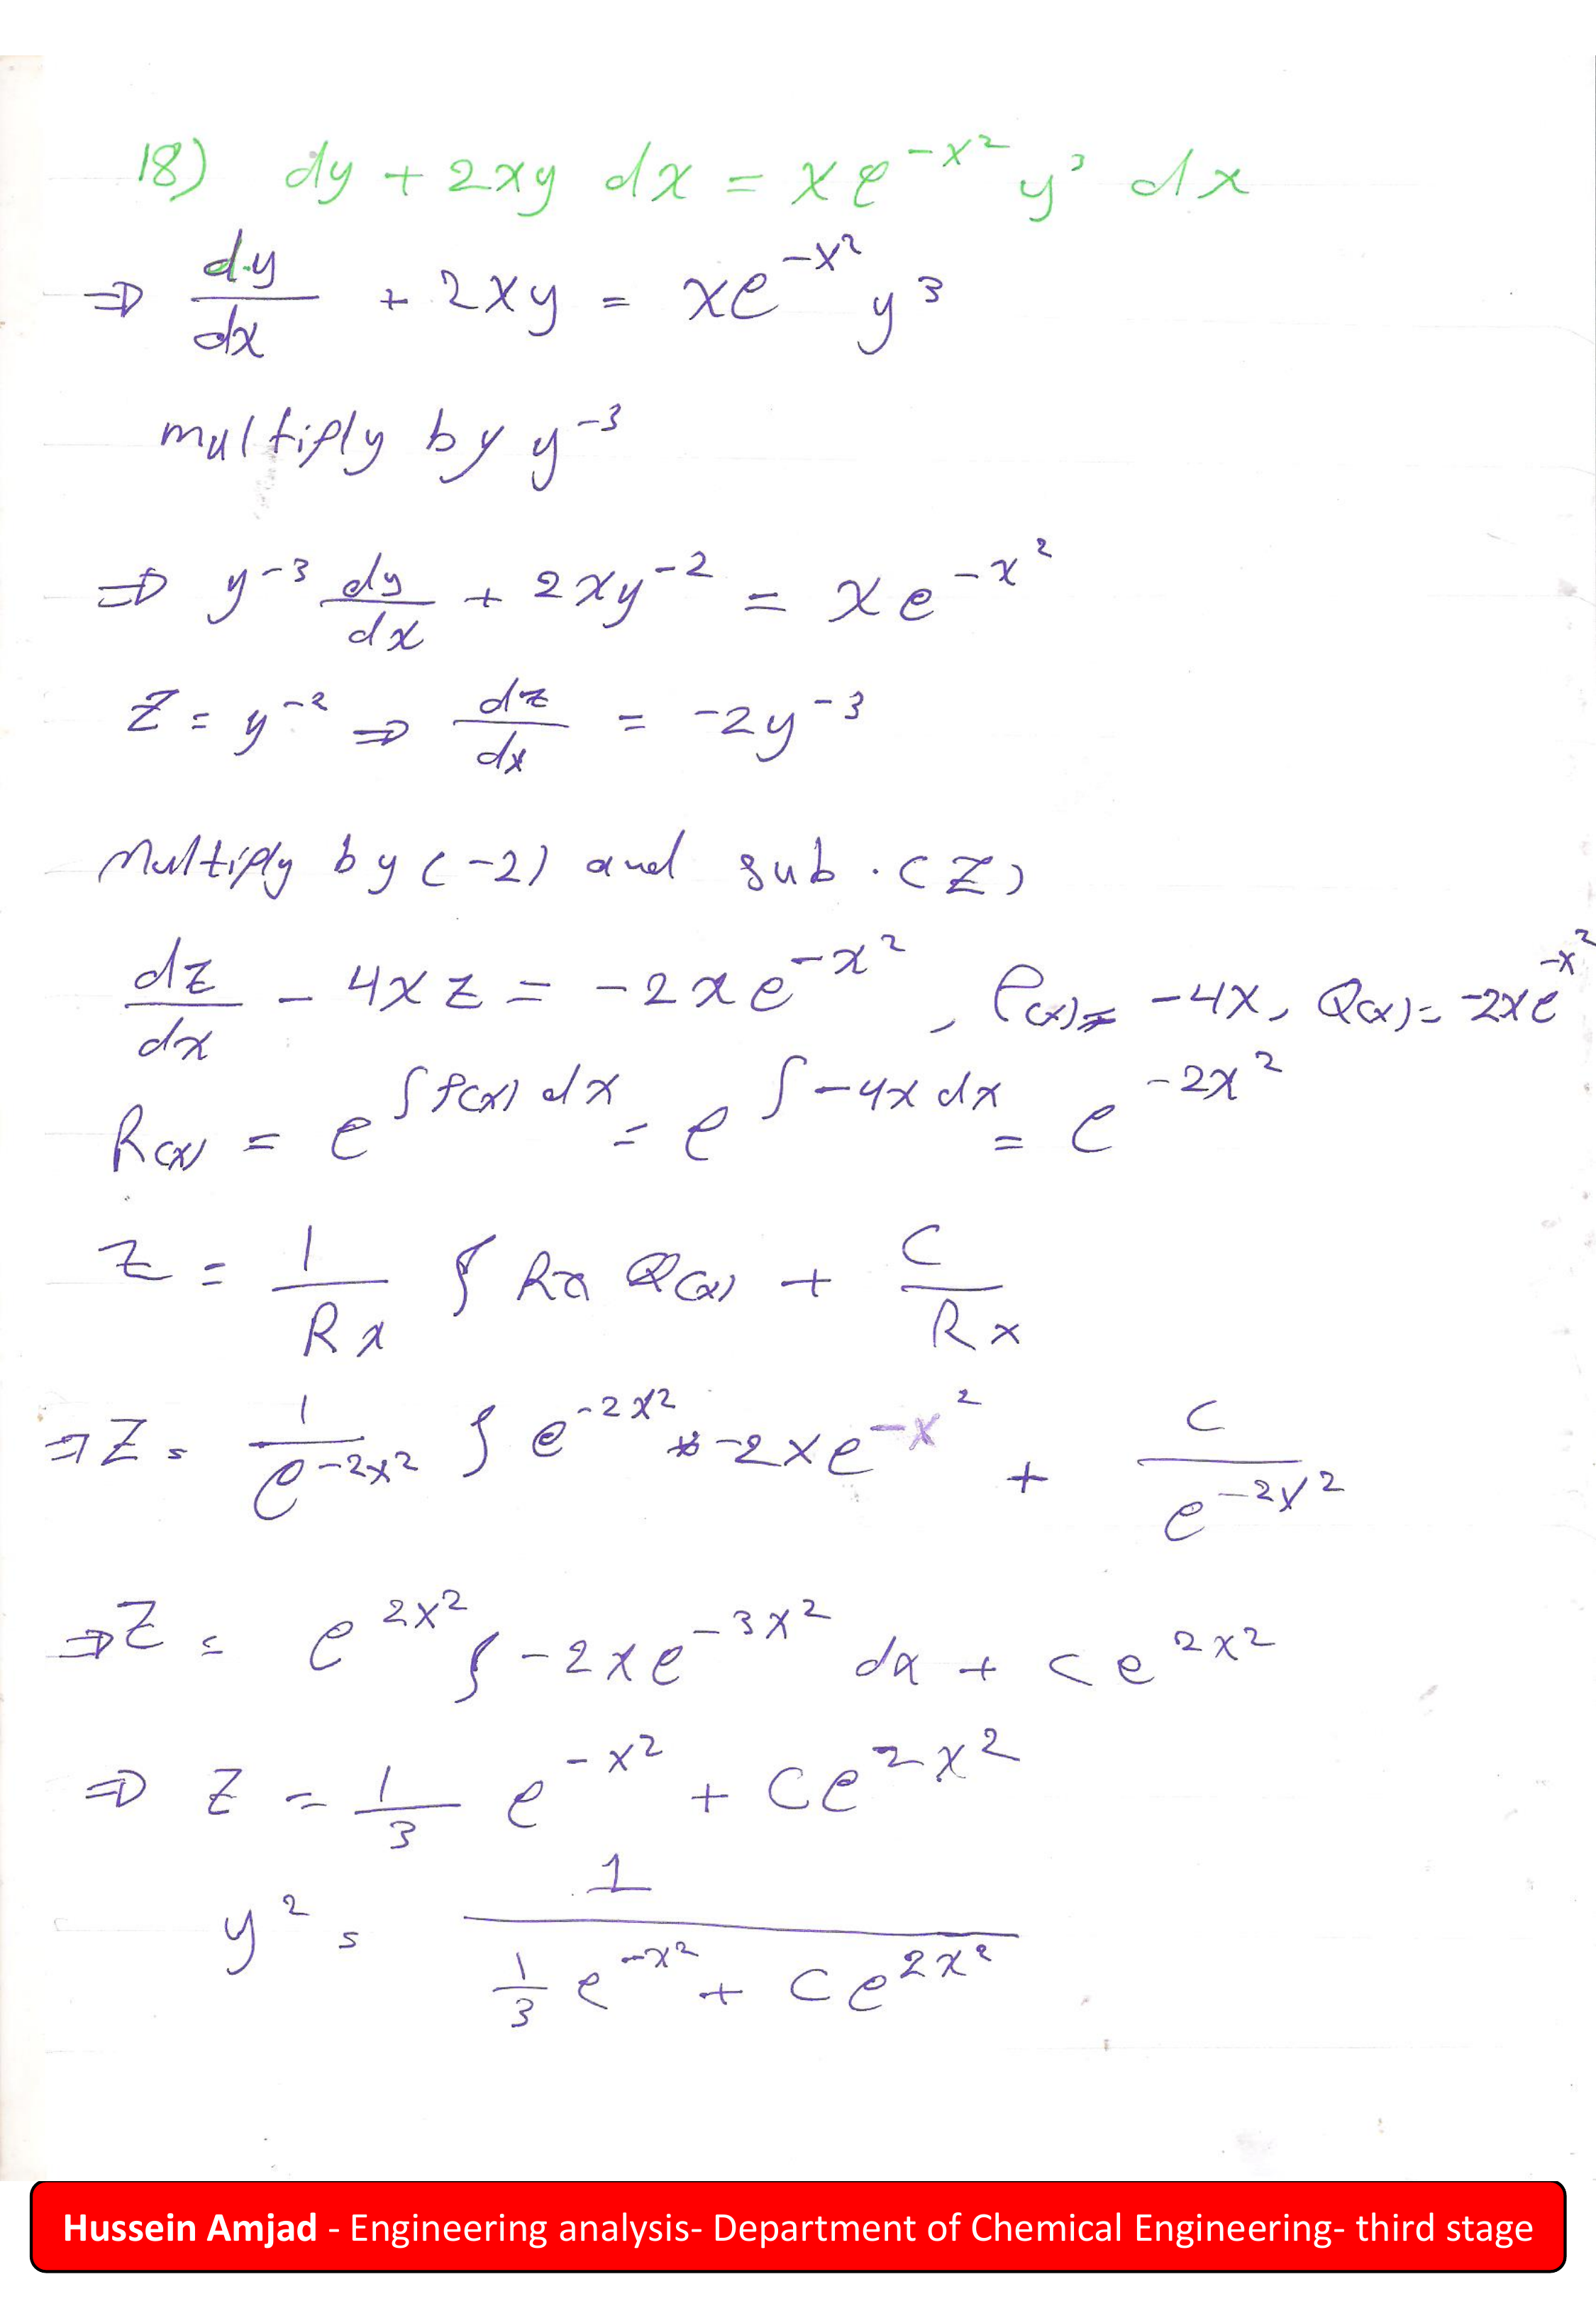 18) dy + 2xy dx = x e^{-x^2} y^3 dx
⇒ dy/dx + 2xy = xe^{-x^2} y^3
multiply by y^{-3}
⇒ y^{-3} dy/dx + 2xy^{-2} = x e^{-x^2}
Z = y^{-2} ⇒ dz/dx = -2y^{-3}
Multiply by (-2) and sub. (Z)
dz/dx - 4xz = -2xe^{-x^2}, P(x) = -4x, Q(x) = -2xe^{-x^2}
R(x) = e^{∫P(x) dx} = e^{∫-4x dx} = e^{-2x^2}
Z = 1/Rx ∫ Rx Q(x) + C/Rx
⇒ Z = 1/e^{-2x^2} ∫ e^{-2x^2} * -2xe^{-x^2} + C/e^{-2x^2}
⇒ Z = e^{2x^2} ∫ -2xe^{-3x^2} dx + Ce^{2x^2}
⇒ Z = 1/3 e^{-x^2} + Ce^{2x^2}
y^2 = 1/(1/3 e^{-x^2} + Ce^{2x^2})
Hussein Amjad - Engineering analysis- Department of Chemical Engineering- third stage